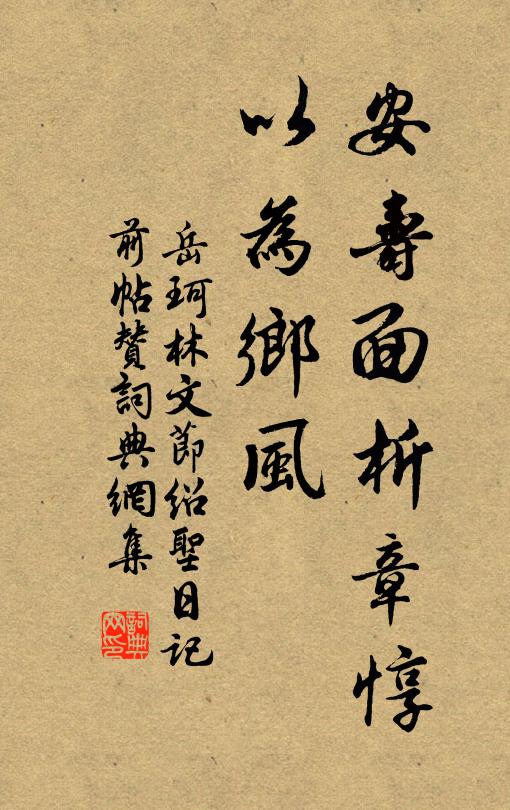 安壽面析章惇
以為鄉風
岳珂林文節紹聖日記
前帖贊詞典網集
詞典網印